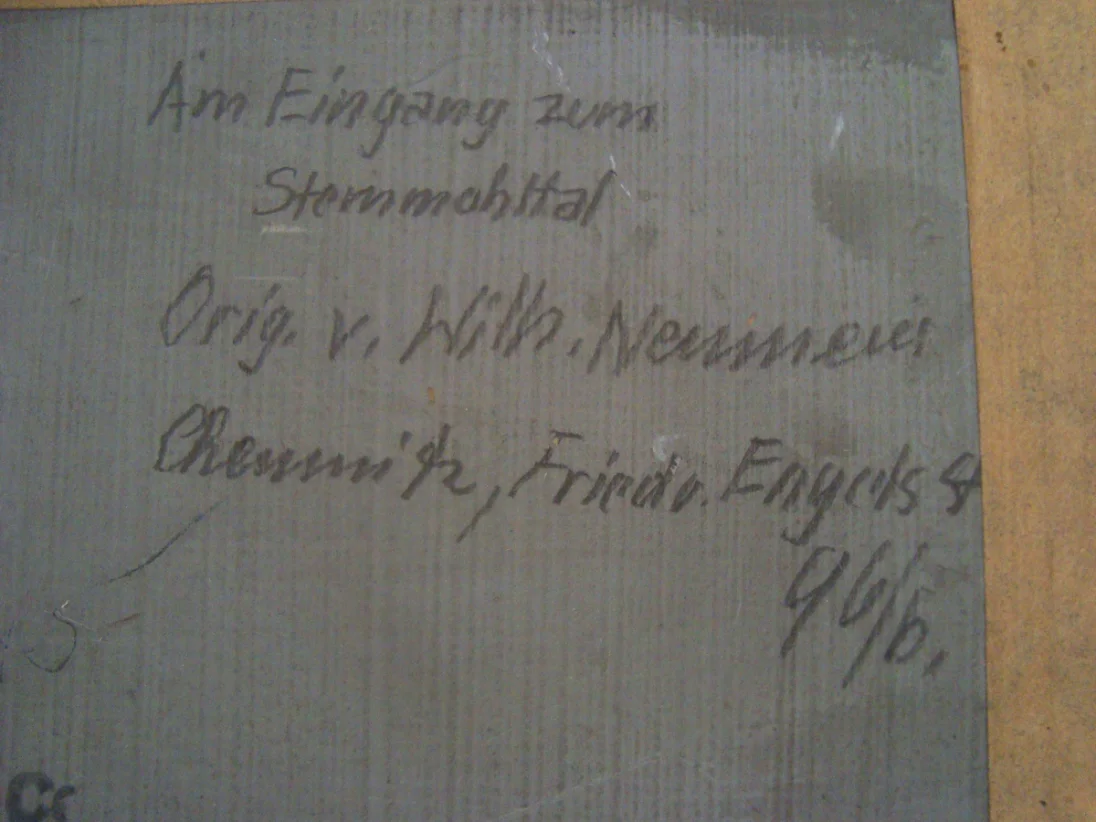 Am Eingang zum
Sternmohttal
Orig. v. Wilh. Neumeier
Chemnitz, Friedr. Engels St
96/b.